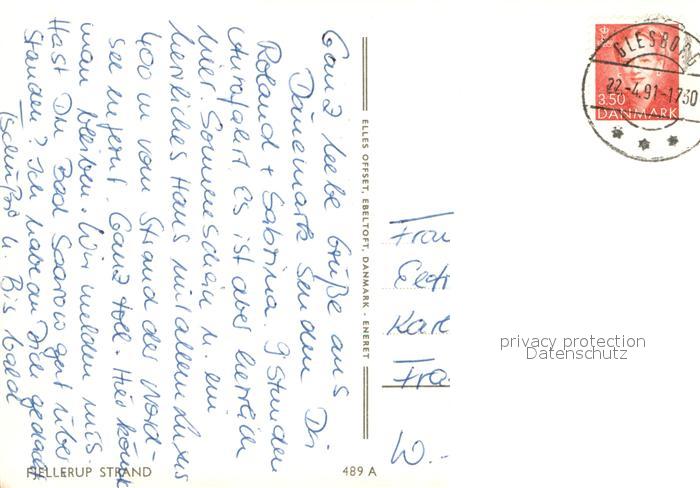 Ganz liebe Grüße aus
Dänemark senden Dir
Roland + Sabrina. 9 Stunden
Autofahrt. Es ist aber herrlich
hier. Sonnenschein u. ein
herrliches Haus mit allem Luxus
400 m vom Strand der Nord-
see entfernt. Ganz toll. Hier könnte
man bleiben. Wir melden uns.
Hast Du Bad Saarow gut über
standen? Ich habe an Dich gedacht
Tschüß u. Bis bald
ELLES OFFSET, EBELTOFT, DANMARK - ENERET
FJELLERUP STRAND
489 A
GLESBORG
22.-4.91-1730
3.50
DANMARK
Frau
Karl
Fra
W.-
privacy protection
Datenschutz